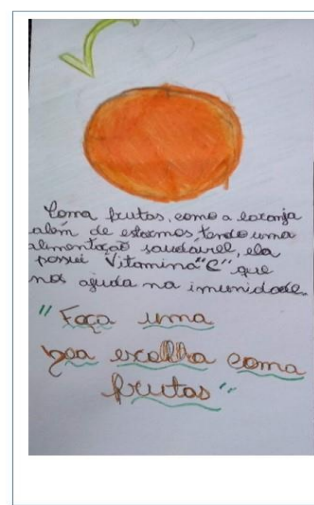 Coma frutas, como a laranja
além de estarmos tendo uma
alimentação saudável, ela
possui Vitamina "C" que
nos ajuda na imunidade.
"Faça uma
boa escolha coma
frutas"